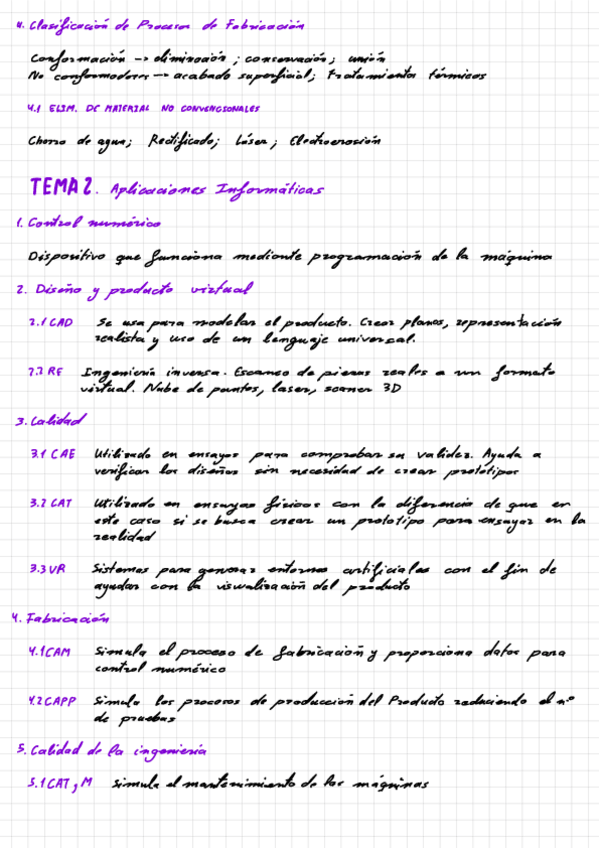 4. Clasificación de Procesos de Fabricación
Conformación -> eliminación ; conservación ; unión
No conformadores -> acabado superficial; tratamientos térmicos
4.1 ELIM. DE MATERIAL NO CONVENCIONALES
Chorro de agua; Rectificado; Láser; Electroerosión
TEMA 2. Aplicaciones Informáticas
1. Control numérico
Dispositivo que funciona mediante programación de la máquina
2. Diseño y producto virtual
2.1 CAD Se usa para modelar el producto. Crear planos, representación
realista y uso de un lenguaje universal.
2.2 RE Ingeniería inversa. Escaneo de piezas reales a un formato
virtual. Nube de puntos, laser, scaner 3D
3. Calidad
3.1 CAE Utilizado en ensayos para comprobar su validez. Ayuda a
verificar los diseños sin necesidad de crear prototipos
3.2 CAT Utilizado en ensayos físicos con la diferencia de que en
este caso si se busca crear un prototipo para ensayar en la
realidad
3.3 VR Sistemas para generar entornos artificiales con el fin de
ayudar con la visualización del producto
4. Fabricación
4.1 CAM Simula el proceso de fabricación y proporciona datos para
control numérico
4.2 CAPP Simula los procesos de producción del Producto reduciendo el nº
de pruebas
5. Calidad de la ingeniería
5.1 CAT y M Simula el mantenimiento de las máquinas